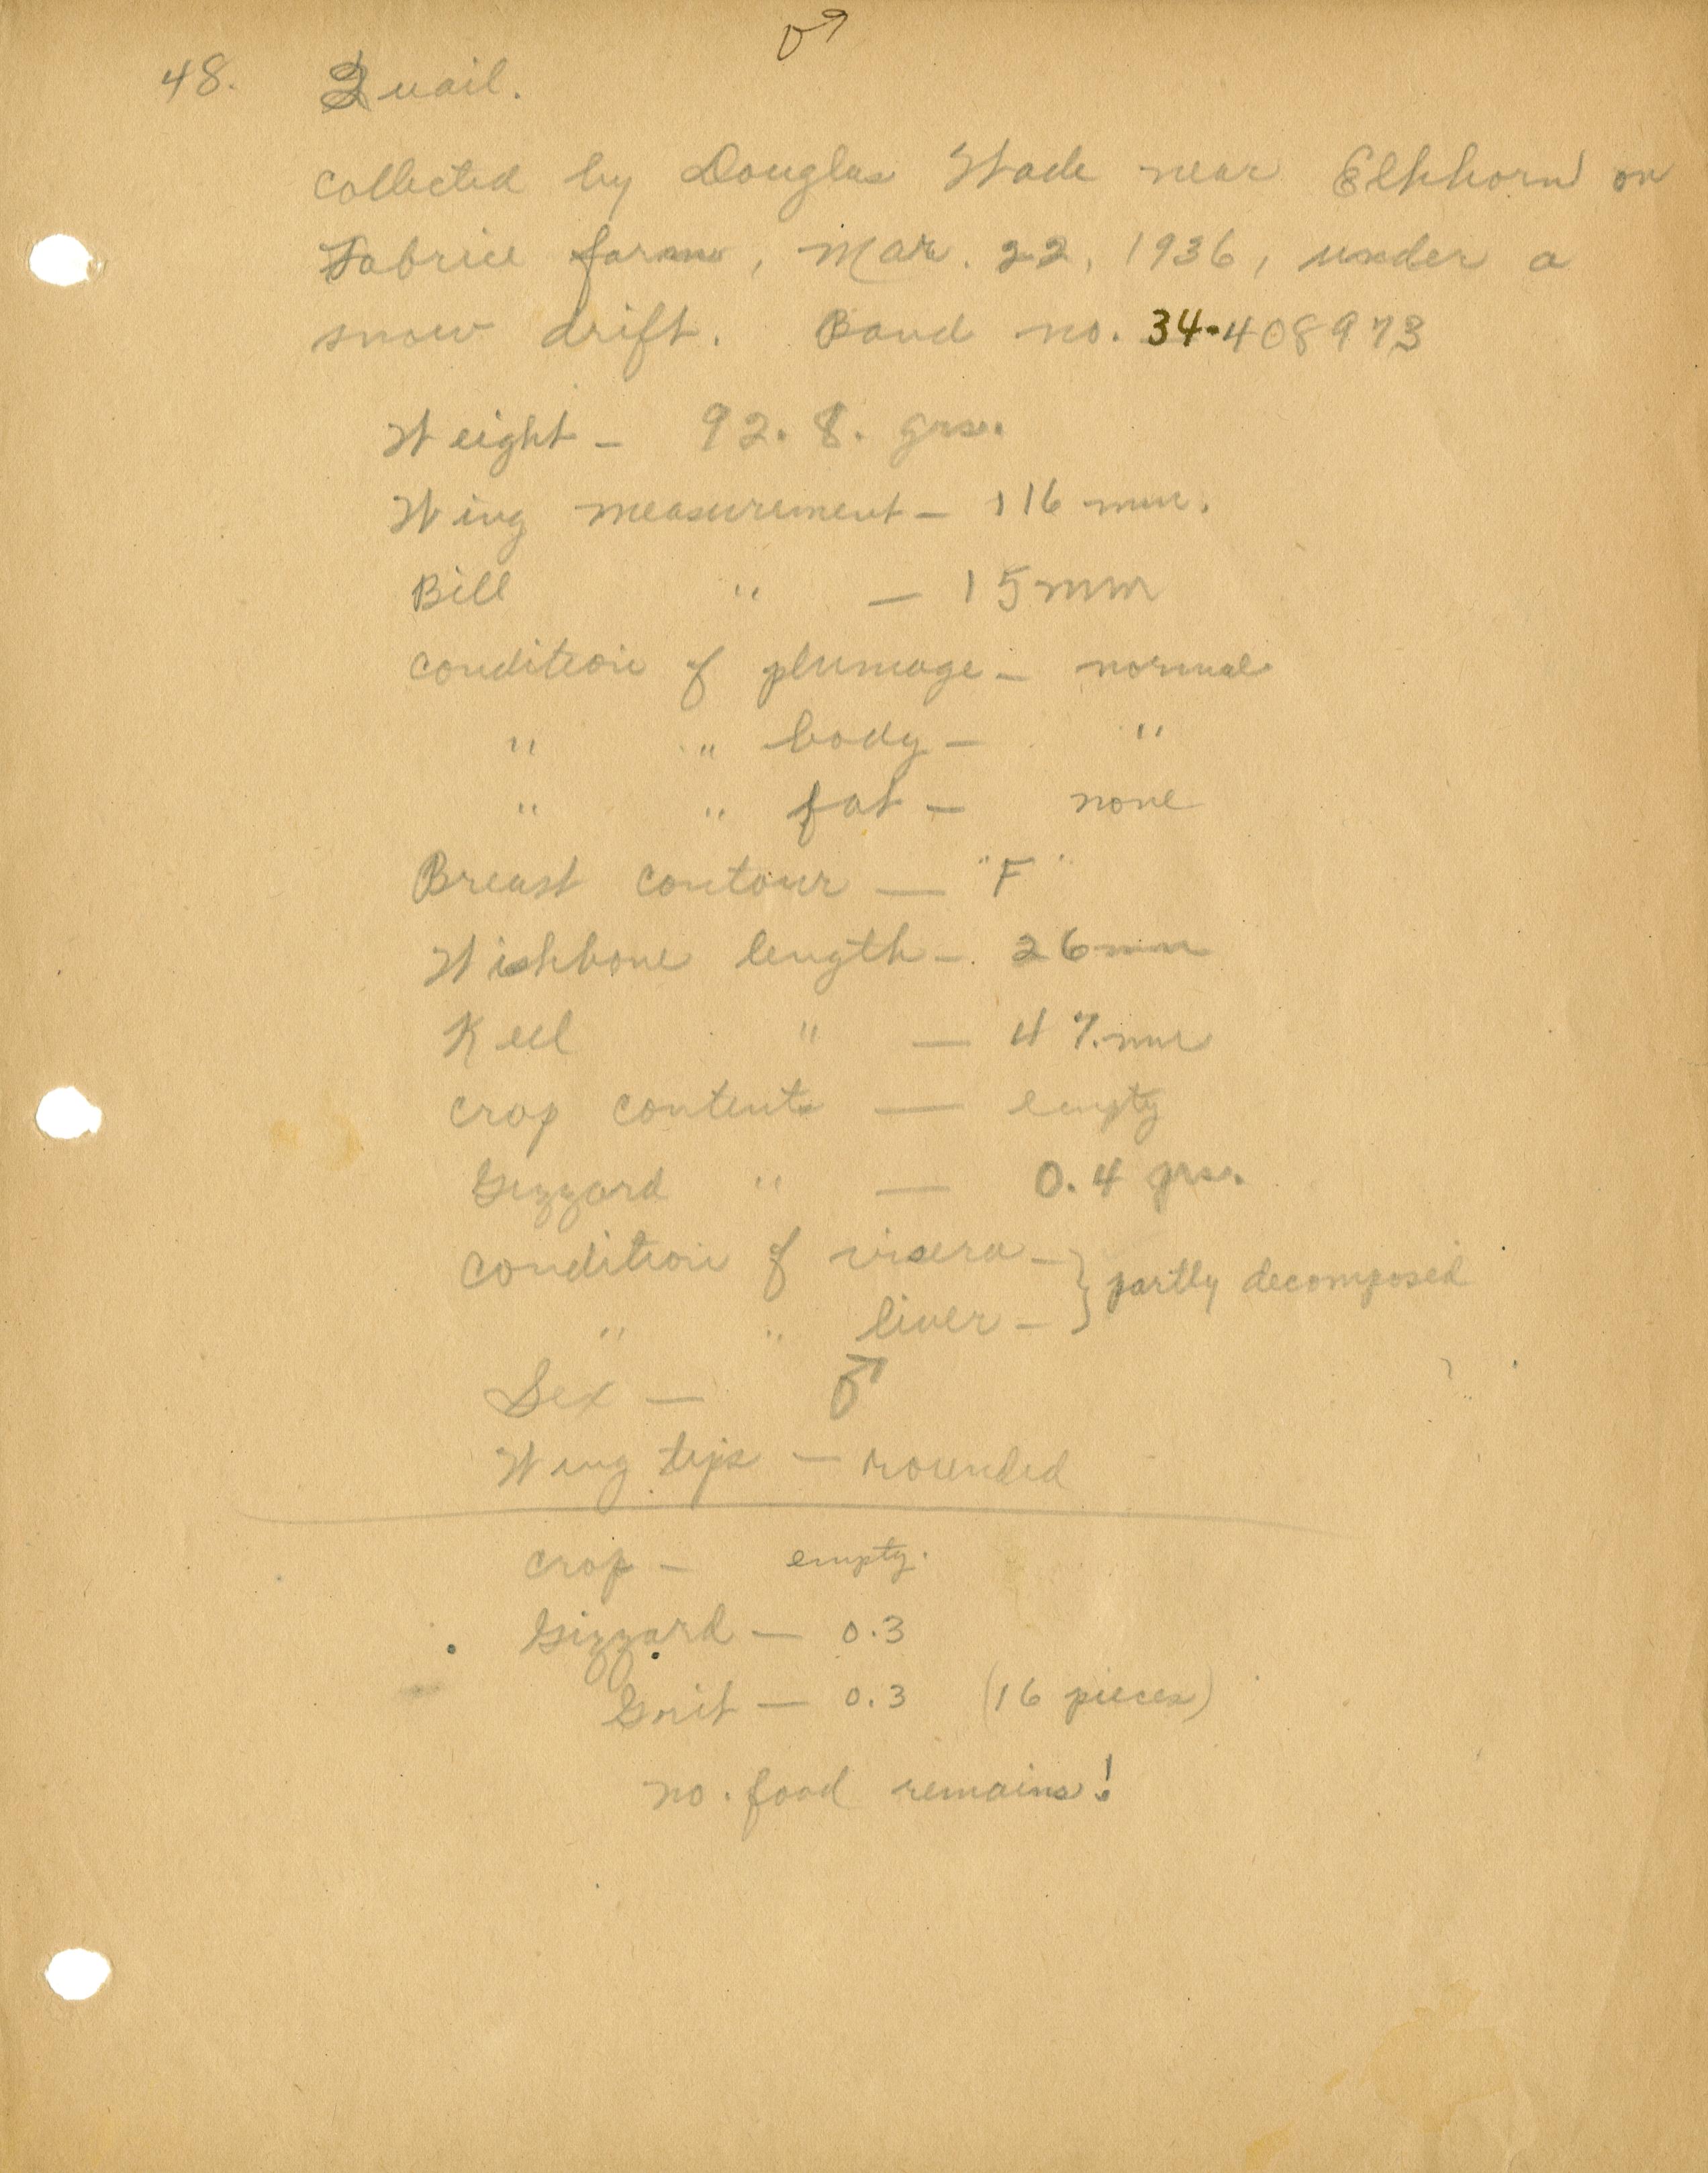 ♂
48. Quail.
collected by Douglas Wade near Elkhorn on
Fabrice farm, Mar. 22, 1936, under a
snow drift. Band no. 34-408973
Weight - 92.8. grs.
Wing measurement - 116 mm.
Bill " - 15 mm
condition of plumage - normal
" " body - "
" " fat - none
Breast contour - "F"
Wishbone length - 26 mm
Keel " - 47. mm
crop contents - empty
Gizzard " - 0.4 grs.
condition of visera - } partly decomposed
" " liver -
Sex - ♂
Wing tips - rounded
crop - empty.
Gizzard - 0.3
Grit - 0.3 (16 pieces)
no. food remains!